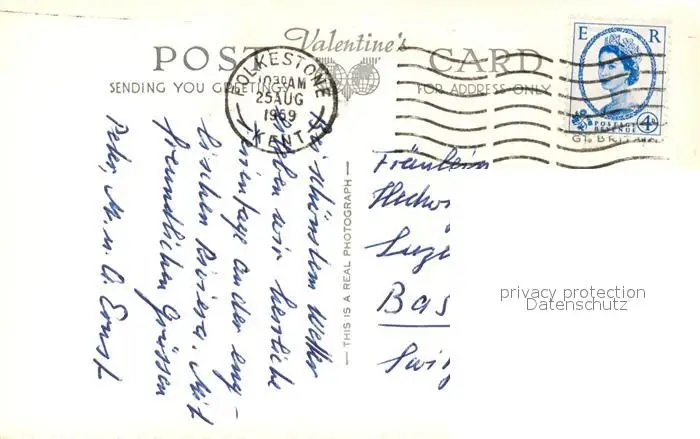 Valentine's
POST CARD
SENDING YOU GREETINGS
FOR ADDRESS ONLY
FOLKESTONE
10 30 AM
25 AUG
1959
KENT
E R
POSTAGE
REVENUE
4D
Bei schönstem Wetter
erleben wir herrliche
Ferientage an der eng-
lischen Riviera. Mit
freundlichen Grüssen
Peter, M. u. A. Ernst
— THIS IS A REAL PHOTOGRAPH —
Fräulein
Hedw
Luze
Bas
privacy protection
Datenschutz